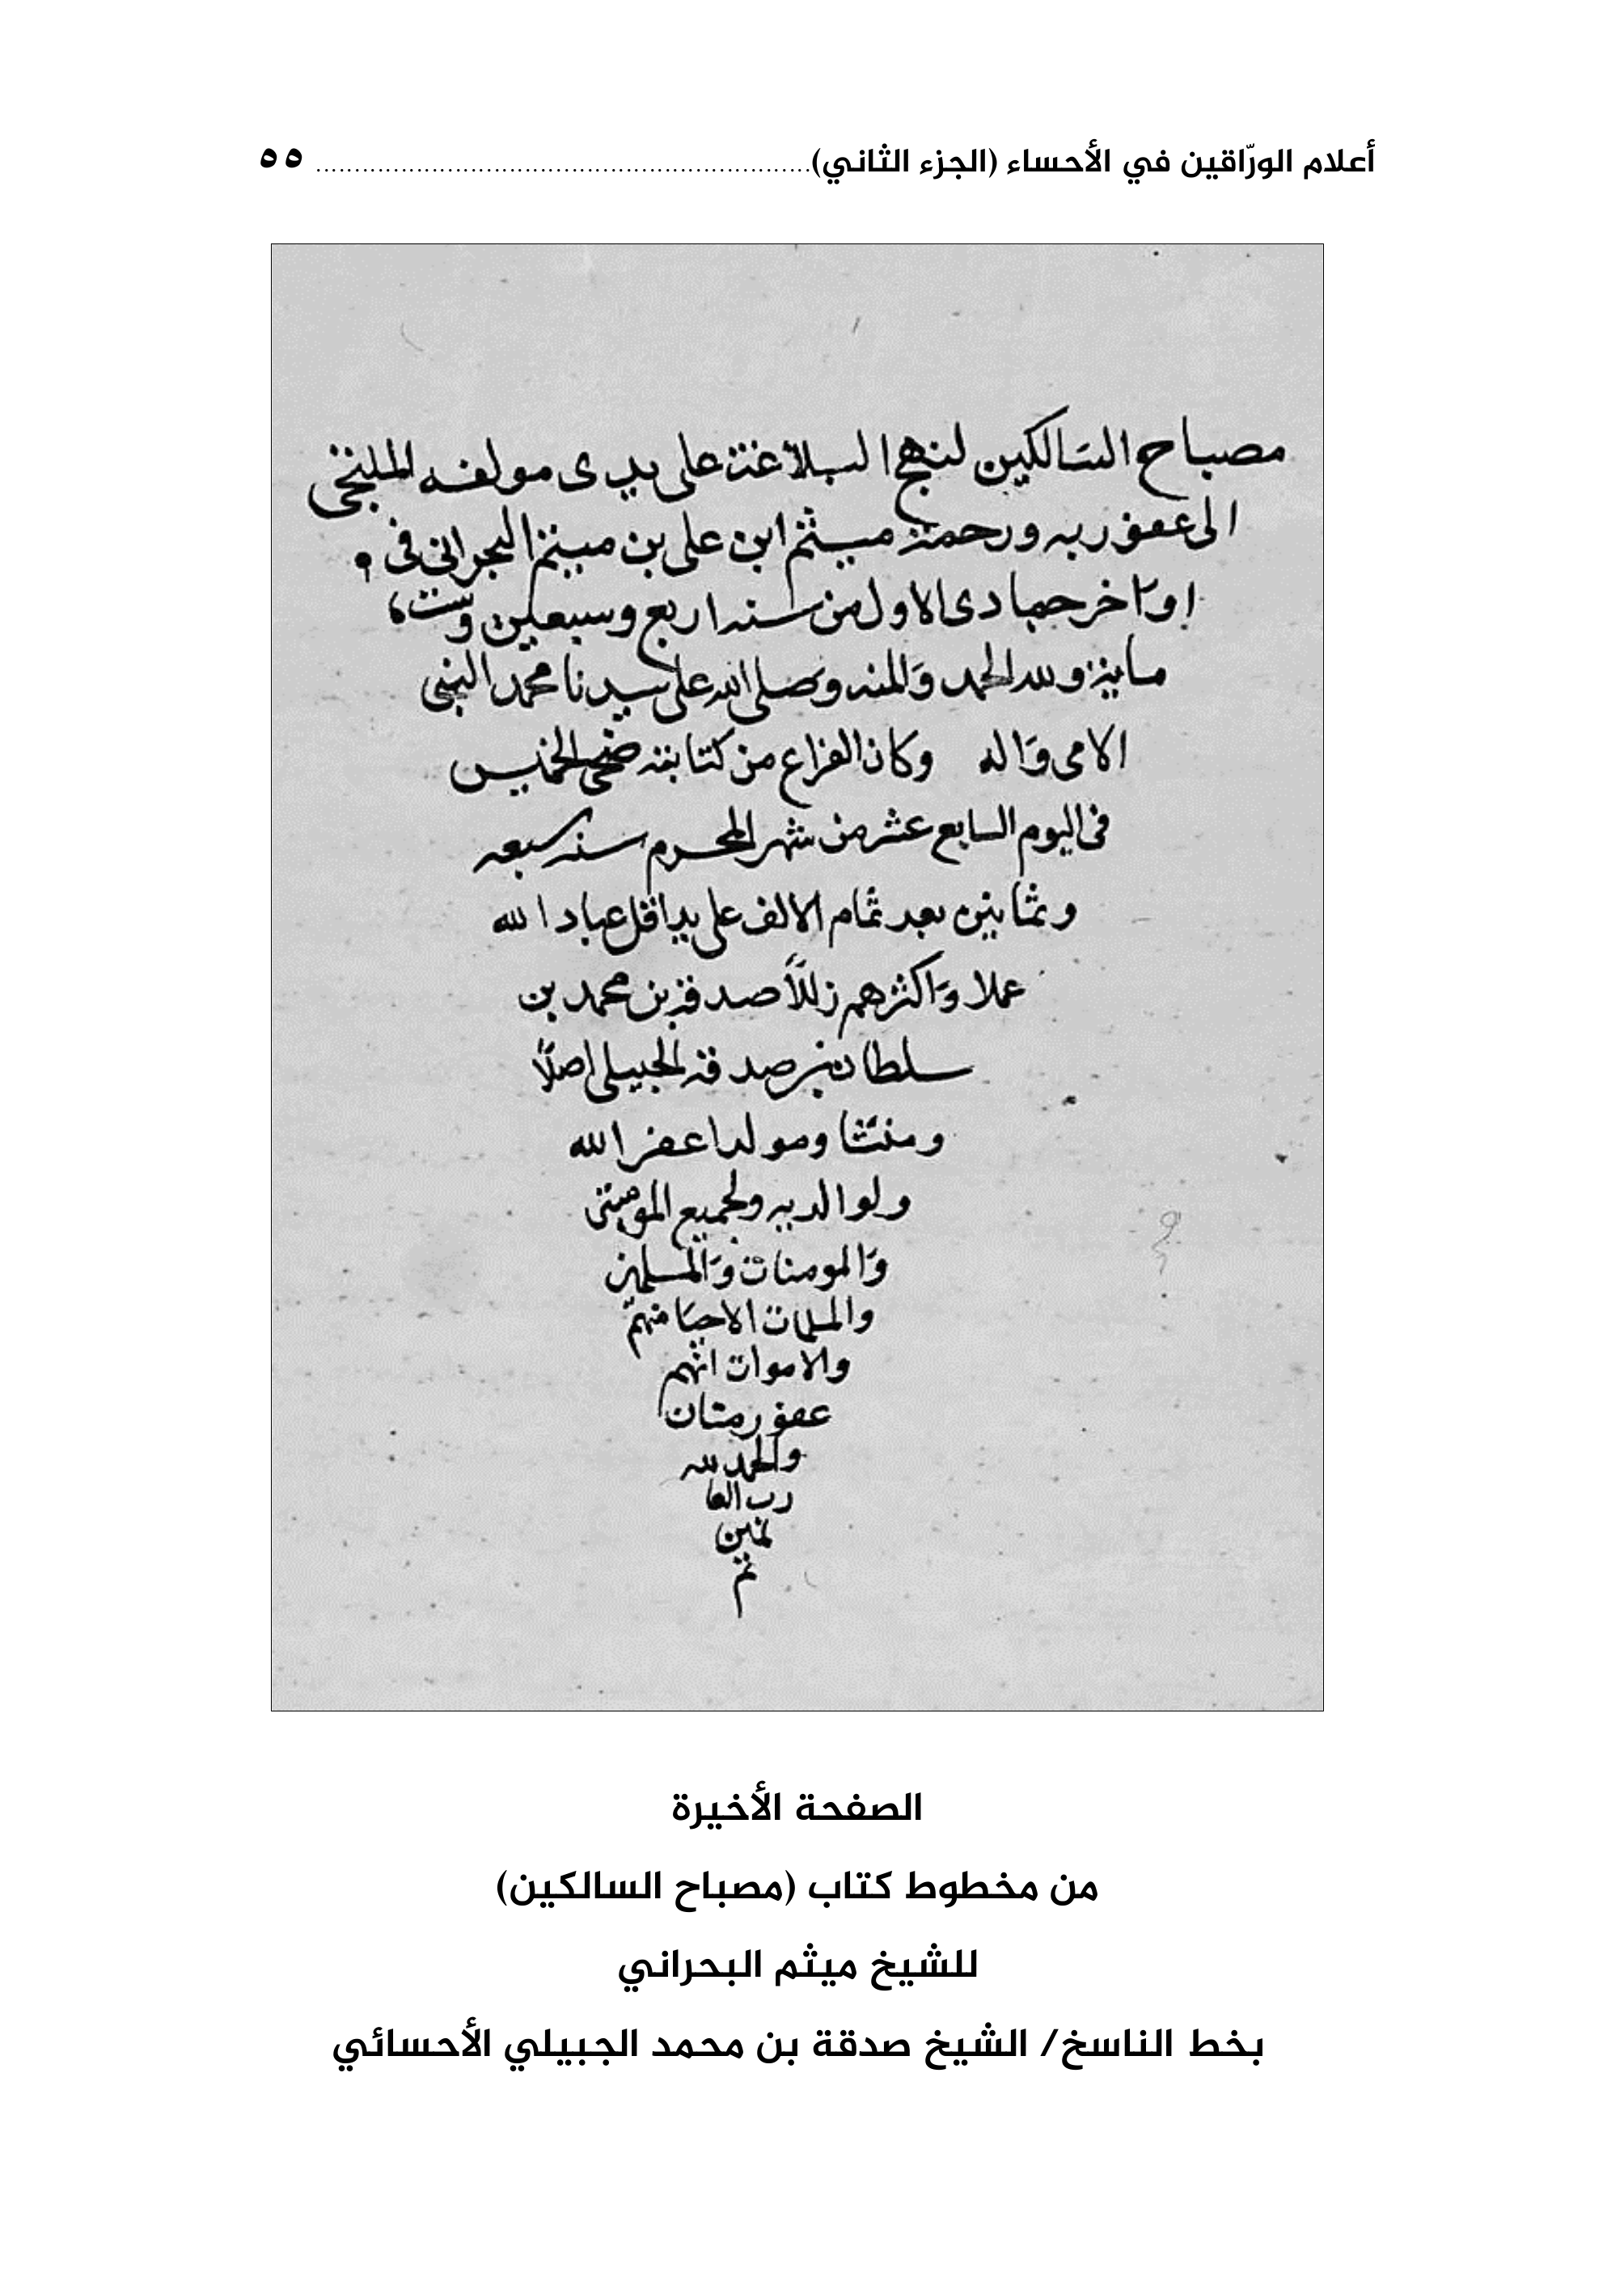 أعلام الورّاقين في الأحساء (الجزء الثاني) ........ ٥٥
مصباح السالكين لنهج البلاغة على يدى مولفه الملتجى
الى عفو ربه ورحمته ميثم ابن على بن ميثم البحرانى فى
اواخر جمادى الاول من سنه اربع وسبعين وست
ماية ولله الحمد والمنه وصلى الله على سيدنا محمد النبى
الامى واله وكان الفراغ من كتابته ضحى الخميس
فى اليوم السابع عشر من شهر المحرم سنه سبعه
وثمانين بعد تمام الالف على يد اقل عباد الله
عملا واكثرهم زللاً صدقة بن محمد بن
سلطان بن صدقة الجبيلى اصلاً
ومنشا ومولدا غفر الله
ولوالديه ولجميع المومنين
والمومنات والمسلمين
والمسلمات الاحيا منهم
والاموات انهم
عفو رمنان
والحمد لله
رب العا
لمين
تم
الصفحة الأخيرة
من مخطوط كتاب (مصباح السالكين)
للشيخ ميثم البحراني
بخط الناسخ/ الشيخ صدقة بن محمد الجبيلي الأحسائي